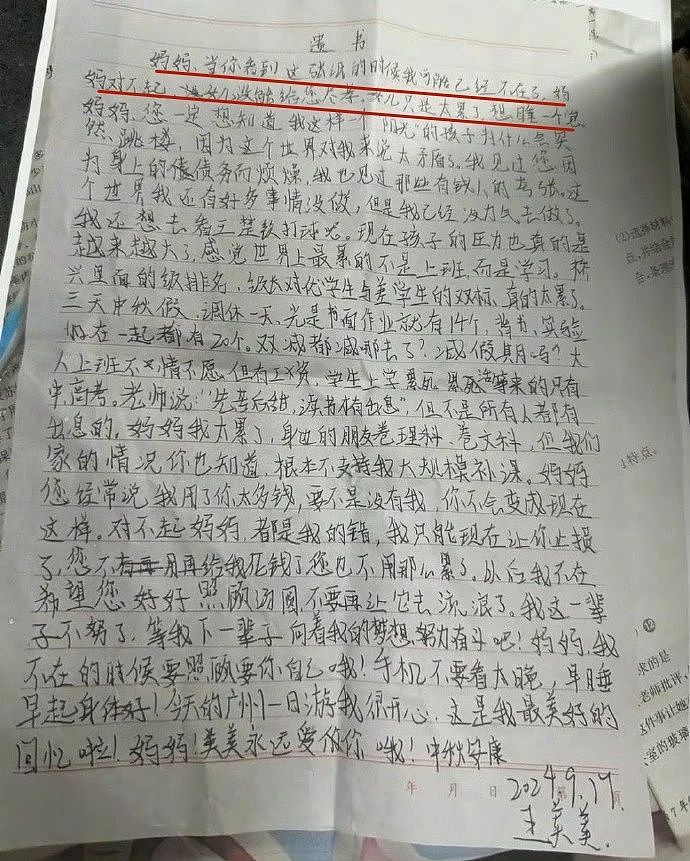 遗书
妈妈、当你看到这张纸的时候我可能已经不在了,妈
妈对不起 女儿没能给您尽孝。女儿只是太累了,想睡一个觉
妈妈、您一定想知道,我这样一个"阳光"的孩子为什么会突
然跳楼,因为这个世界对我来说太矛盾了。我见过您因
为身上的债务而烦燥,我也见过那些有钱人的夸张。这
个世界我还有好多事情没做,但是我已经没力气去做了。
我还想去看三 打球呢。现在孩子的压力也真的是
越来越大了,感觉世界上最累的不是上班,而是学习。
兴里面的级排名,级长对优学生与差学生的双标,真的太累了。
三天中秋假,调休一天,光是书面作业就有14个,背书、实验
归在一起都有20个。双减都减哪去了?减假期吗?大
人上班不情不愿,但有工资,学生上学累死累活等来的只有
中高考。老师说:"先苦后甜,读书才有出息",但不是所有人都有
出息的。妈妈我太累了,身边的朋友卷理科、卷文科,但我们
家的情况你也知道,根本不支持我大规模补课。妈妈
您经常说我用了你太多钱,要不是没有我,你不会变成现在
这样。对不起妈妈,都是我的错,我只能现在让你止损
了,您不用再给我花钱了您也不用那么累了。以后我不在
希望您好好照顾汤圆,不要再让它去流浪了。我这一辈
子不努了,等我下一辈子向着我的梦想努力奋斗吧!妈妈,我
不在的时候要照顾要你自己哦!手机不要看太晚,早睡
早起身体好!今天的广州一日游我很开心,这是我最美好的
回忆啦!妈妈!美美永远爱你哦!中秋安康
年 月 日
2024.9.17
王美美.
(2)选择材料
特点。
求的是
老师批评、
这件事计地
室的玻璃